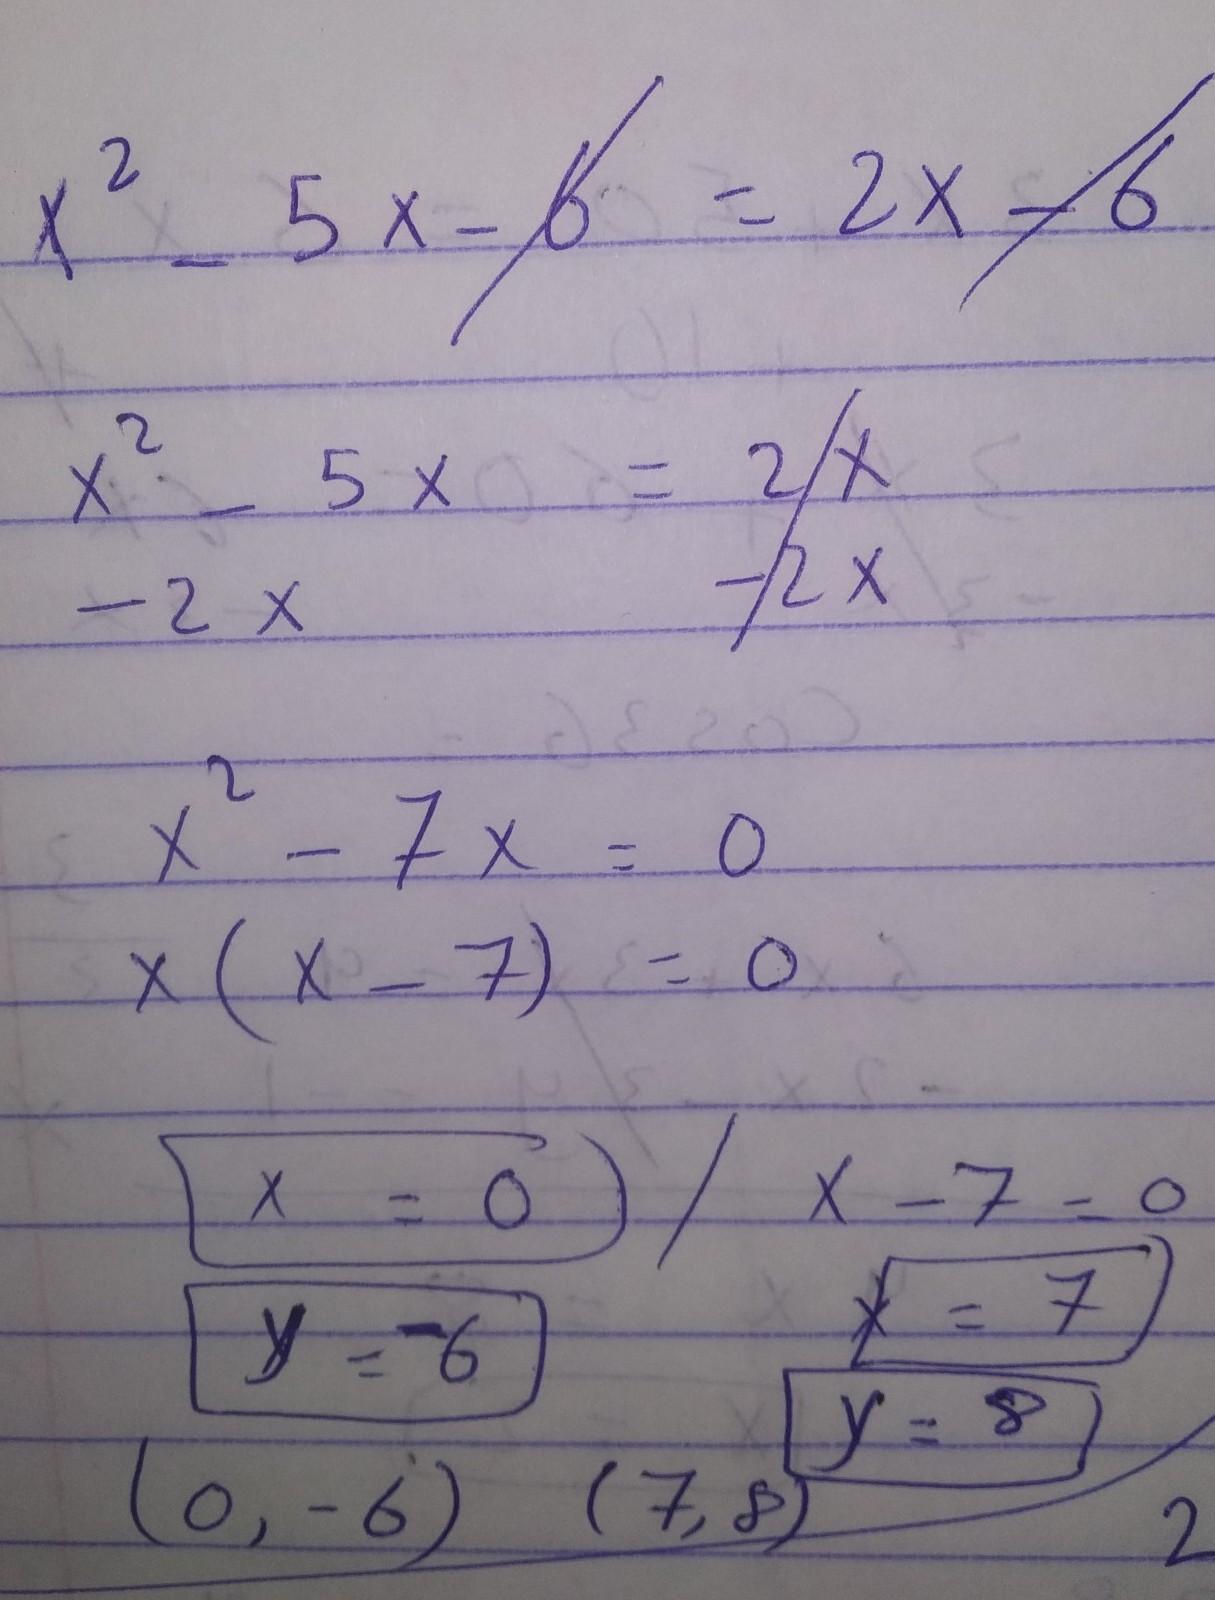 x² - 5x - 6 = 2x - 6
x² - 5x = 2x
-2x -2x
x² - 7x = 0
x(x - 7) = 0
x = 0 / x - 7 = 0
y = -6 x = 7
y = 8
(0, -6) (7, 8)
2